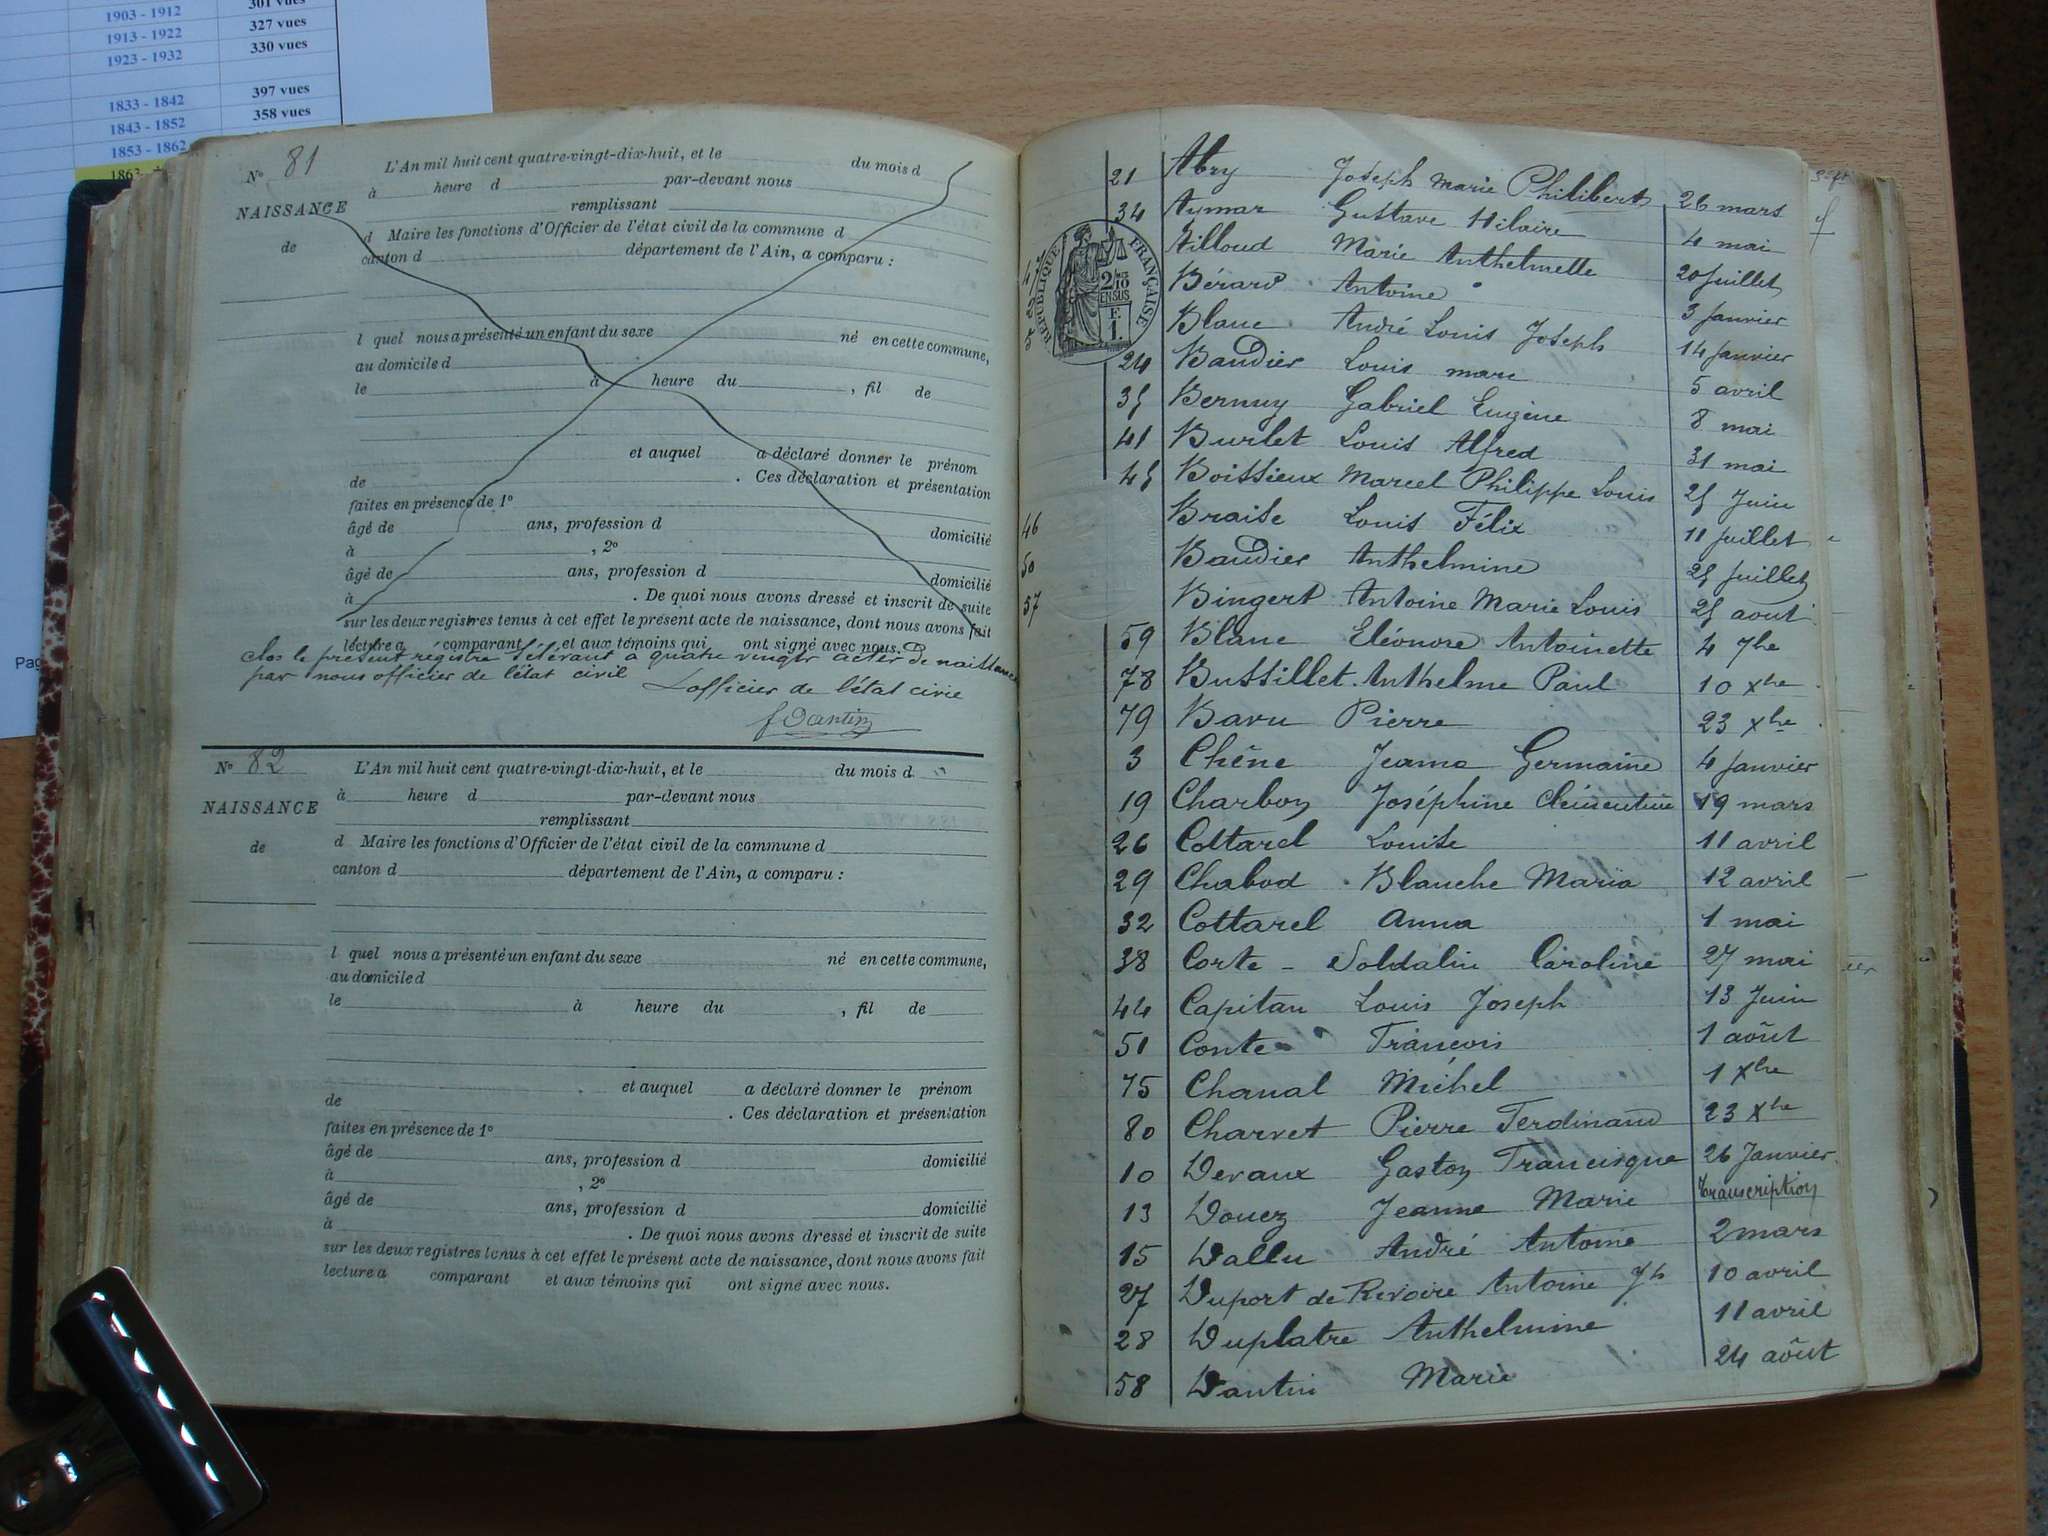 1903 - 1912 301 vues
1913 - 1922 327 vues
1923 - 1932 330 vues
1833 - 1842 397 vues
1843 - 1852 358 vues
1853 - 1862
1863
Pag
N° 81
NAISSANCE
de
L'An mil huit cent quatre-vingt-dix-huit, et le du mois d
à heure d par-devant nous
remplissant
d Maire les fonctions d'Officier de l'état civil de la commune d
canton d département de l'Ain, a comparu :
l quel nous a présenté un enfant du sexe né en cette commune,
au domicile d
le à heure du , fil de
et auquel a déclaré donner le prénom
de . Ces déclaration et présentation
faites en présence de 1°
âgé de ans, profession d domicilié
à , 2°
âgé de ans, profession d domicilié
à . De quoi nous avons dressé et inscrit de suite
sur les deux registres tenus à cet effet le présent acte de naissance, dont nous avons fait
lecture a comparant et aux témoins qui ont signé avec nous.
Clos le présent registre s'élevant a quatre vingts actes de naissance
par nous officier de l'état civil L'officier de l'état civil
f Dantin
N° 82
NAISSANCE
de
L'An mil huit cent quatre-vingt-dix-huit, et le du mois d
à heure d par-devant nous
remplissant
d Maire les fonctions d'Officier de l'état civil de la commune d
canton d département de l'Ain, a comparu :
l quel nous a présenté un enfant du sexe né en cette commune,
au domicile d
le à heure du , fil de
et auquel a déclaré donner le prénom
de . Ces déclaration et présentation
faites en présence de 1°
âgé de ans, profession d domicilié
à , 2°
âgé de ans, profession d domicilié
à . De quoi nous avons dressé et inscrit de suite
sur les deux registres tenus à cet effet le présent acte de naissance, dont nous avons fait
lecture a comparant et aux témoins qui ont signé avec nous.
RÉPUBLIQUE FRANÇAISE
2/10
EN SUS
F.
1.
21 Abry Joseph Marie Philibert 26 mars
34 Aymar Gustave Hilaire 4 mai
Ailloud Marie Anthelmette 20 Juillet
Bérard Antoine 3 Janvier
Blanc André Louis Joseph 14 Janvier
24 Baudier Louis marc 5 avril
35 Bernuy Gabriel Eugène 8 mai
41 Burlet Louis Alfred 31 mai
45 Boissieux Marcel Philippe Louis 25 Juin
46 Braise Louis Félix 11 Juillet
50 Baudier Anthelmine 25 Juillet
57 Bingert Antoine Marie Louis 25 aout
59 Blanc Eléonore Antoinette 4 7bre
78 Bussillet Anthelme Paul 10 Xbre
79 Bavu Pierre 23 Xbre
3 Chêne Jeanne Germaine 4 Janvier
19 Charbon Joséphine Clémentine 19 mars
26 Cottarel Louise 11 avril
29 Chabod Blanche Maria 12 avril
32 Cottarel Anna 1 mai
38 Corte - Soldalin Caroline 27 mai
44 Capitan Louis Joseph 13 Juin
51 Conte François 1 août
75 Chanal Michel 1 Xbre
80 Charvet Pierre Ferdinand 23 Xbre
10 Devaux Gaston Francisque 26 Janvier
13 Douez Jeanne Marie Transcription
15 Dallu André Antoine 2 mars
27 Duport de Rivoire Antoine Jh 10 avril
28 Duplatre Anthelmine 11 avril
58 Dantin Marie 24 août